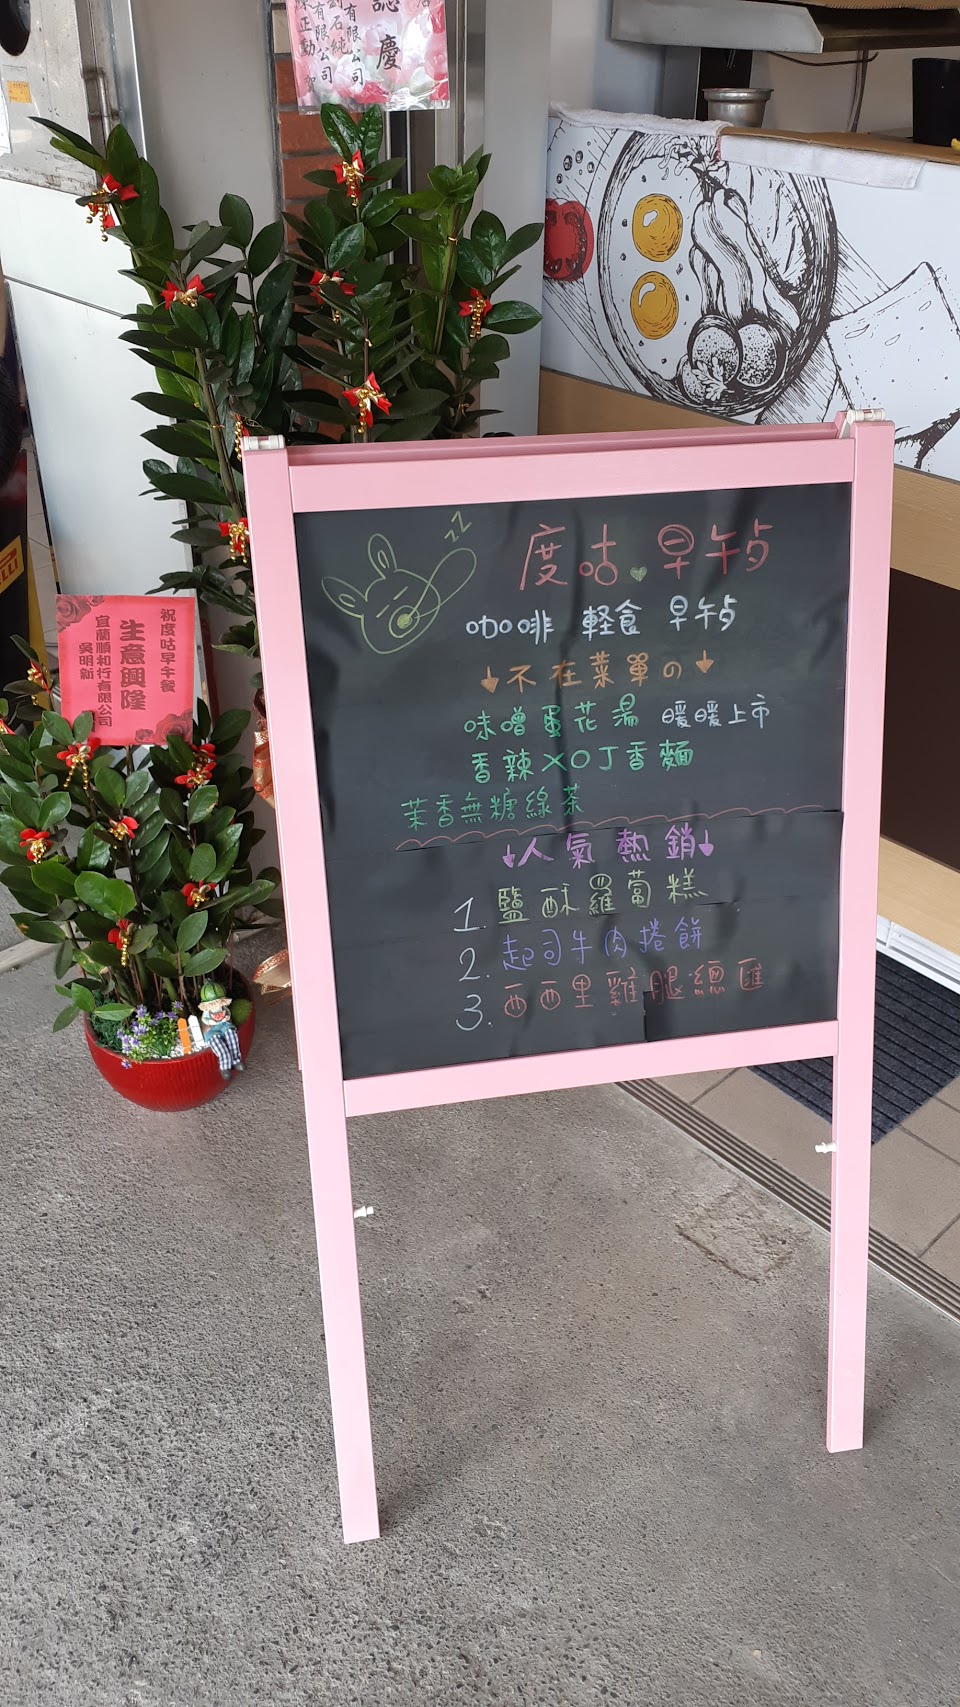 誌慶
有限公司
zz
度咕 早午歺
咖啡 軽食 早午歺
↓不在菜單の↓
味噌蛋花湯 暖暖上市
香辣XO丁香麵
茉香無糖綠茶
↓人氣熱銷↓
1. 鹽酥羅蔔糕
2. 起司牛肉捲餅
3. 西西里雞腿總匯
祝度咕早午餐
生意興隆
宜蘭順和行有限公司
吳明新